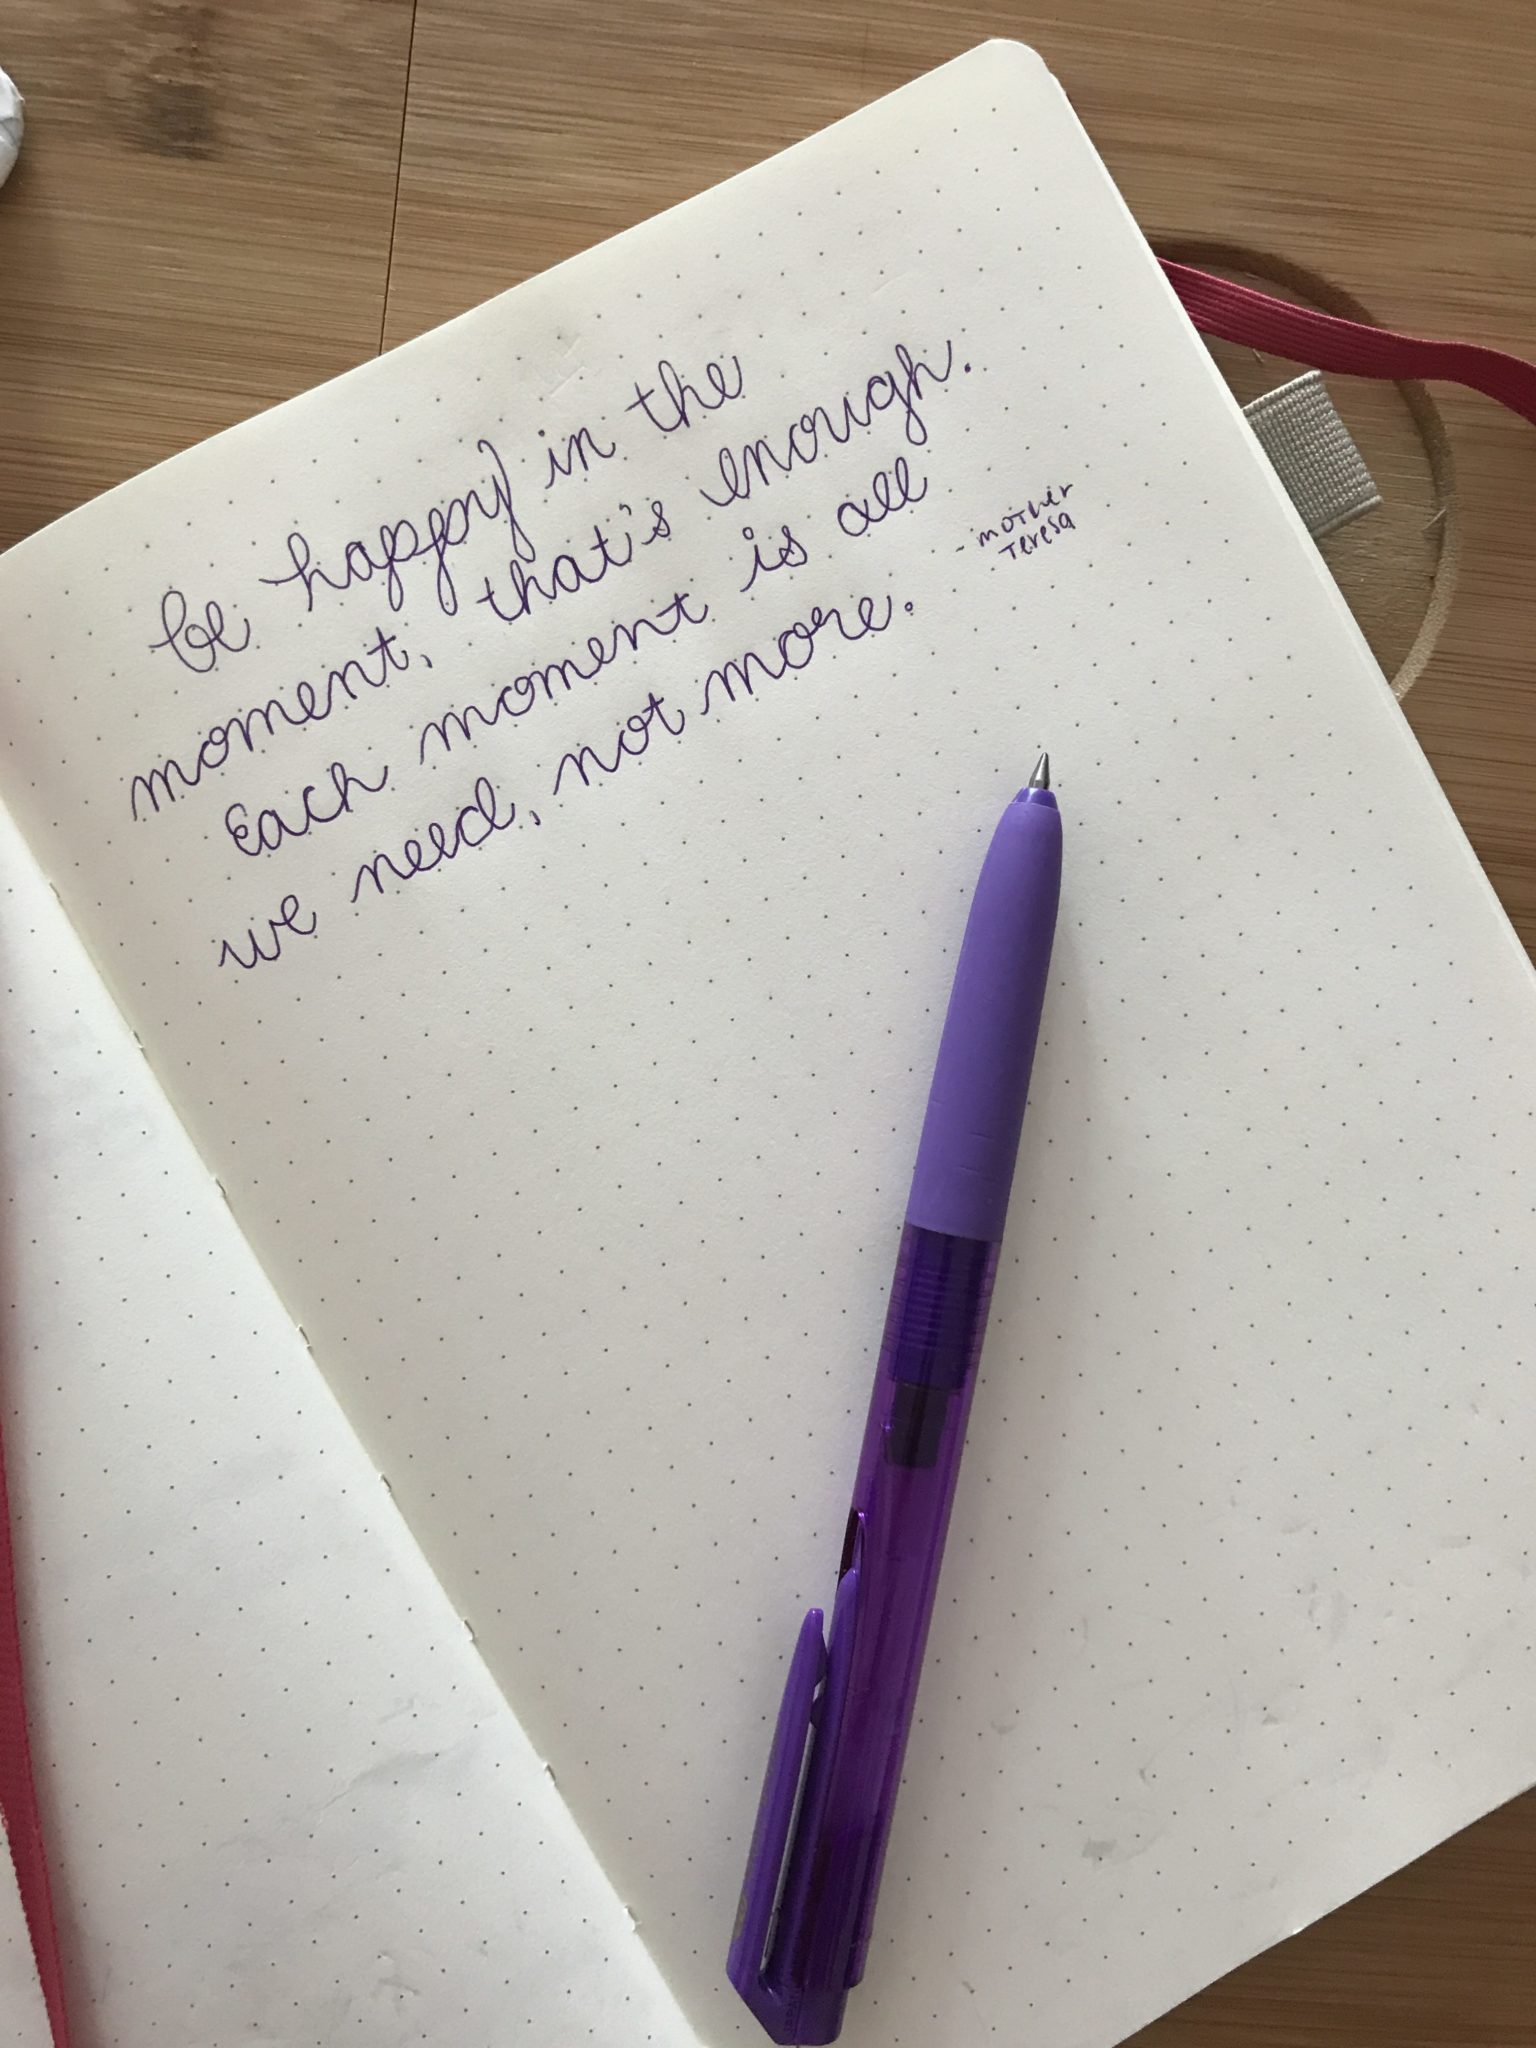 be happy in the
moment, that's enough.
Each moment is all
we need, not more.
- mother
Teresa